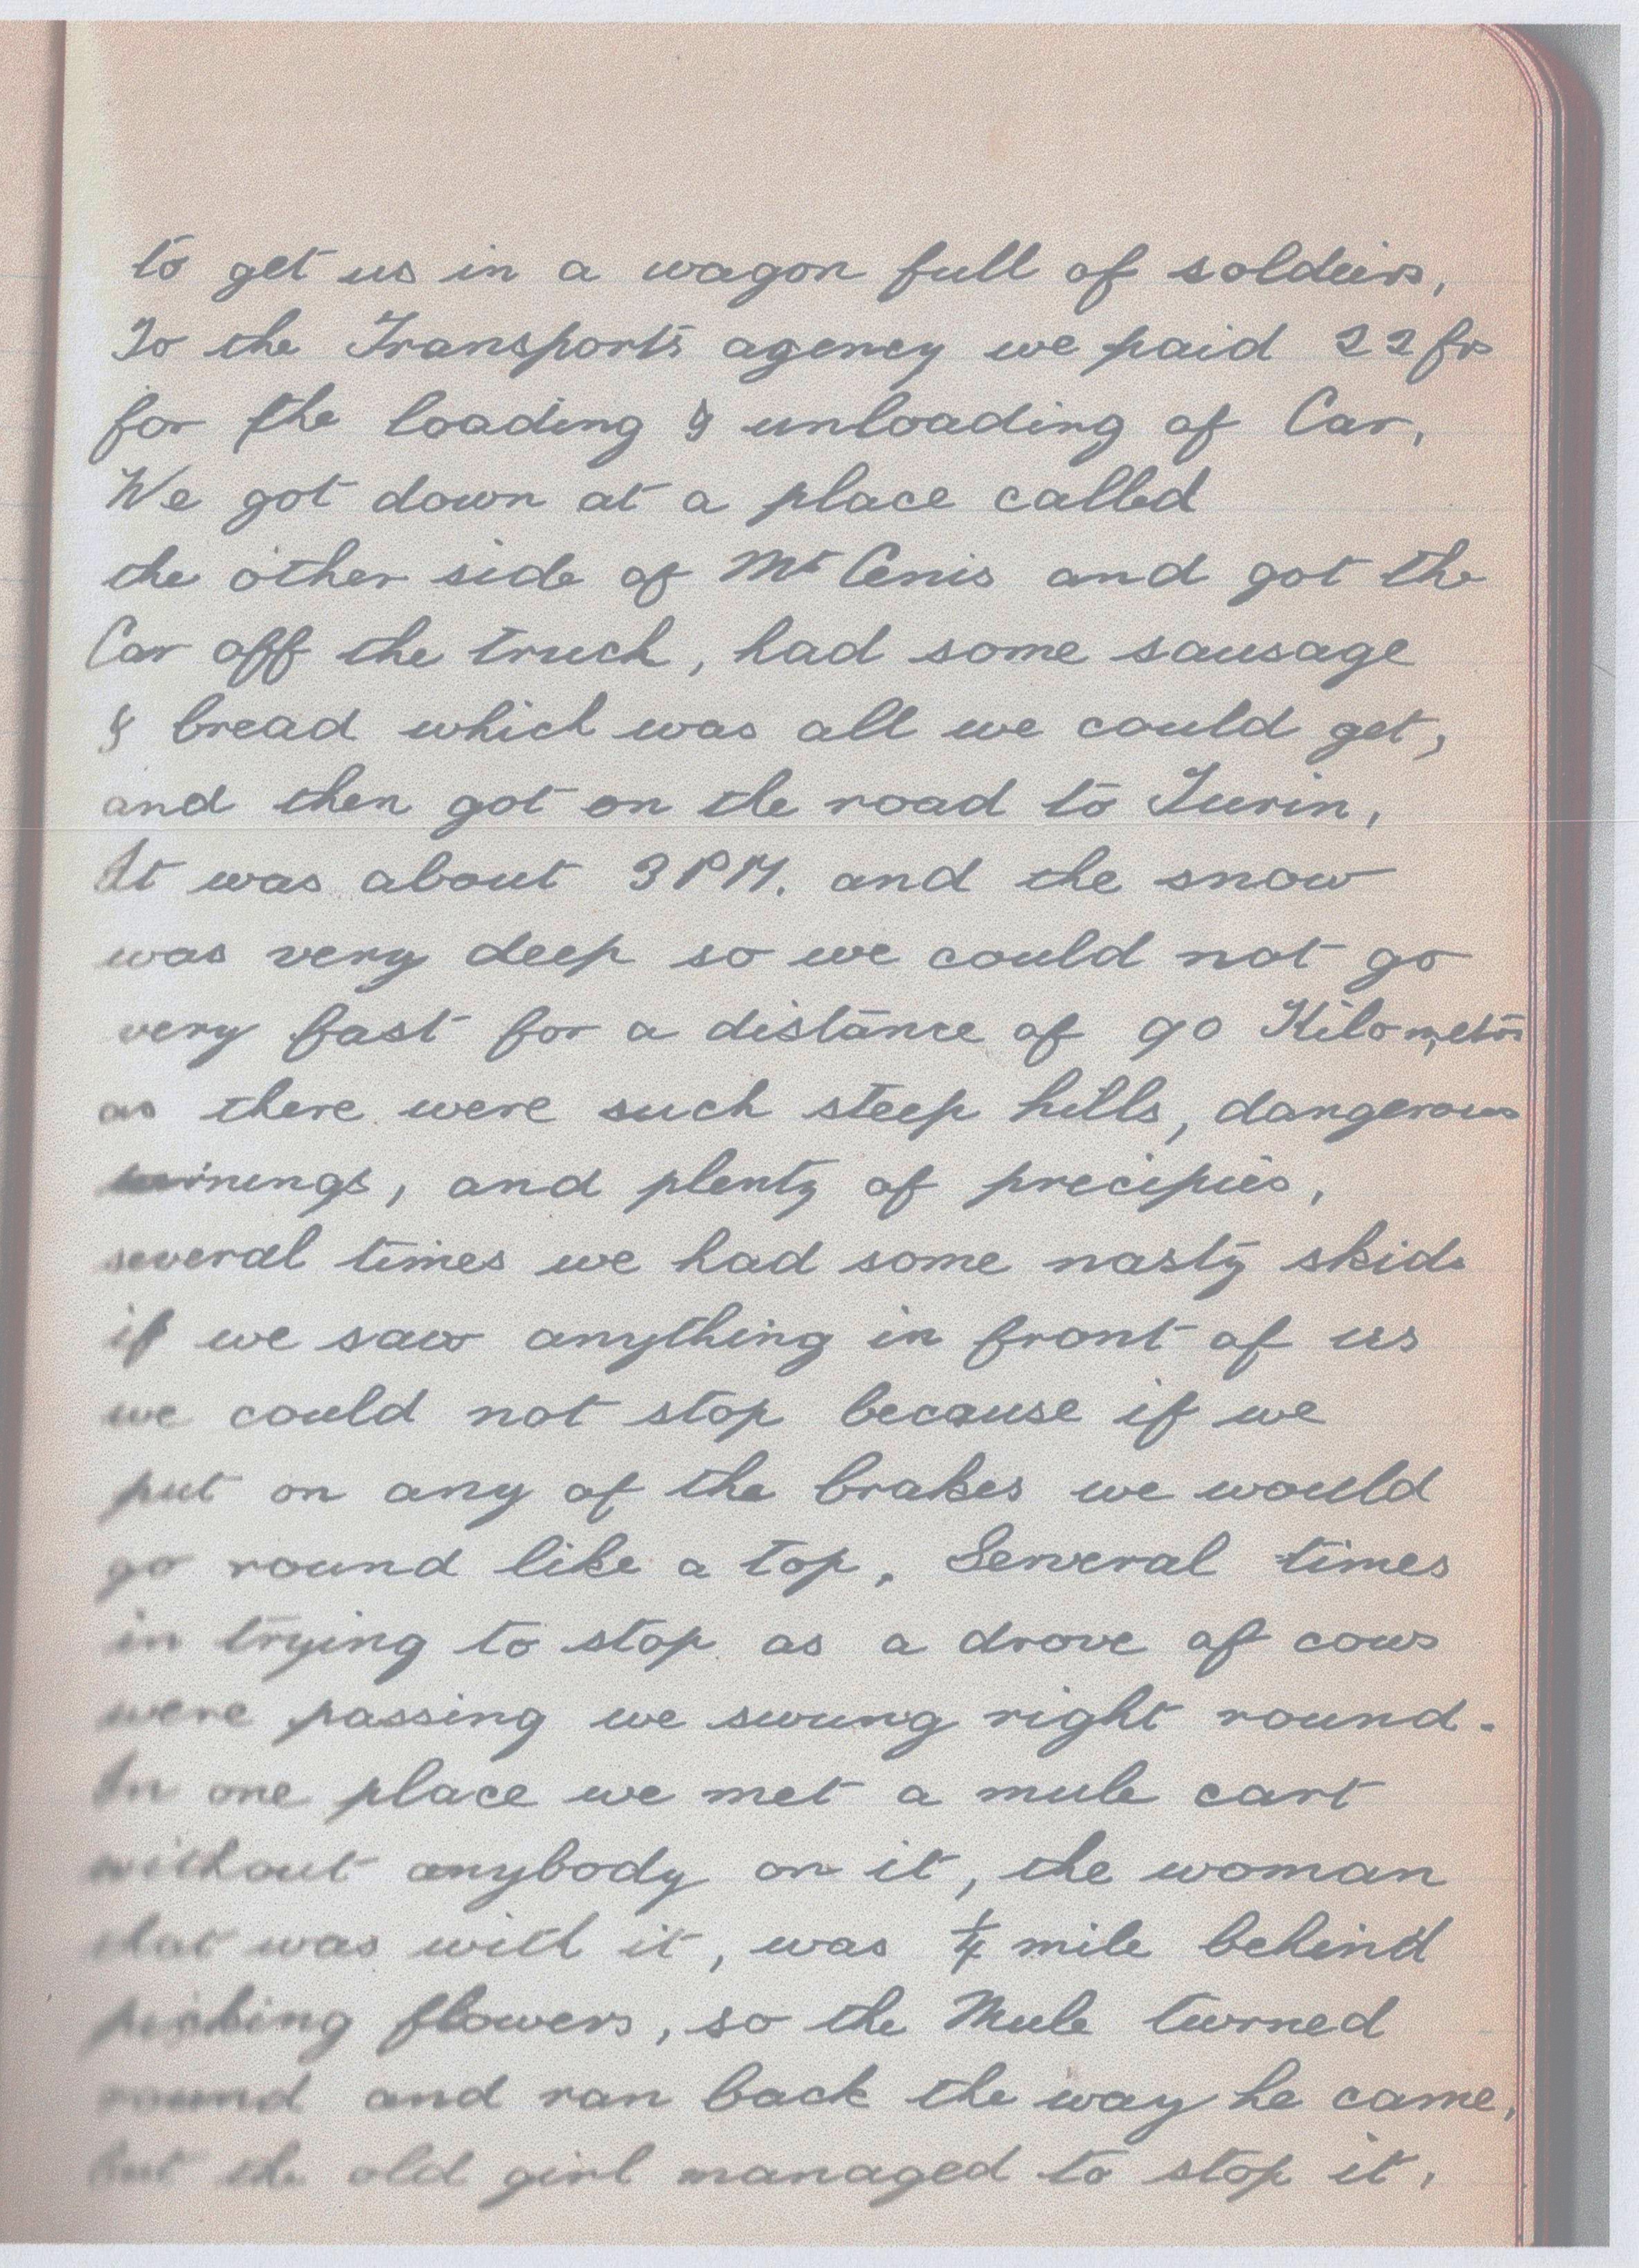 to get us in a wagon full of soldeirs,
To the Transports agency we paid 22 frs
for the loading & unloading of Car,
We got down at a place called
the other side of Mt Cenis and got the
Car off the truck, had some sausage
& bread which was all we could get,
and then got on the road to Turin,
It was about 3 PM. and the snow
was very deep so we could not go
very fast for a distance of 90 Kilometrs
as there were such steep hills, dangerous
turnings, and plenty of precipies,
several times we had some nasty skids
if we saw anything in front of us
we could not stop because if we
put on any of the brakes we would
go round like a top, Serveral times
in trying to stop as a drove of cows
were passing we swung right round.
In one place we met a mule cart
without anybody on it, the woman
that was with it, was 1/4 mile behind
picking flowers, so the Mule turned
round and ran back the way he came,
but the old girl managed to stop it,